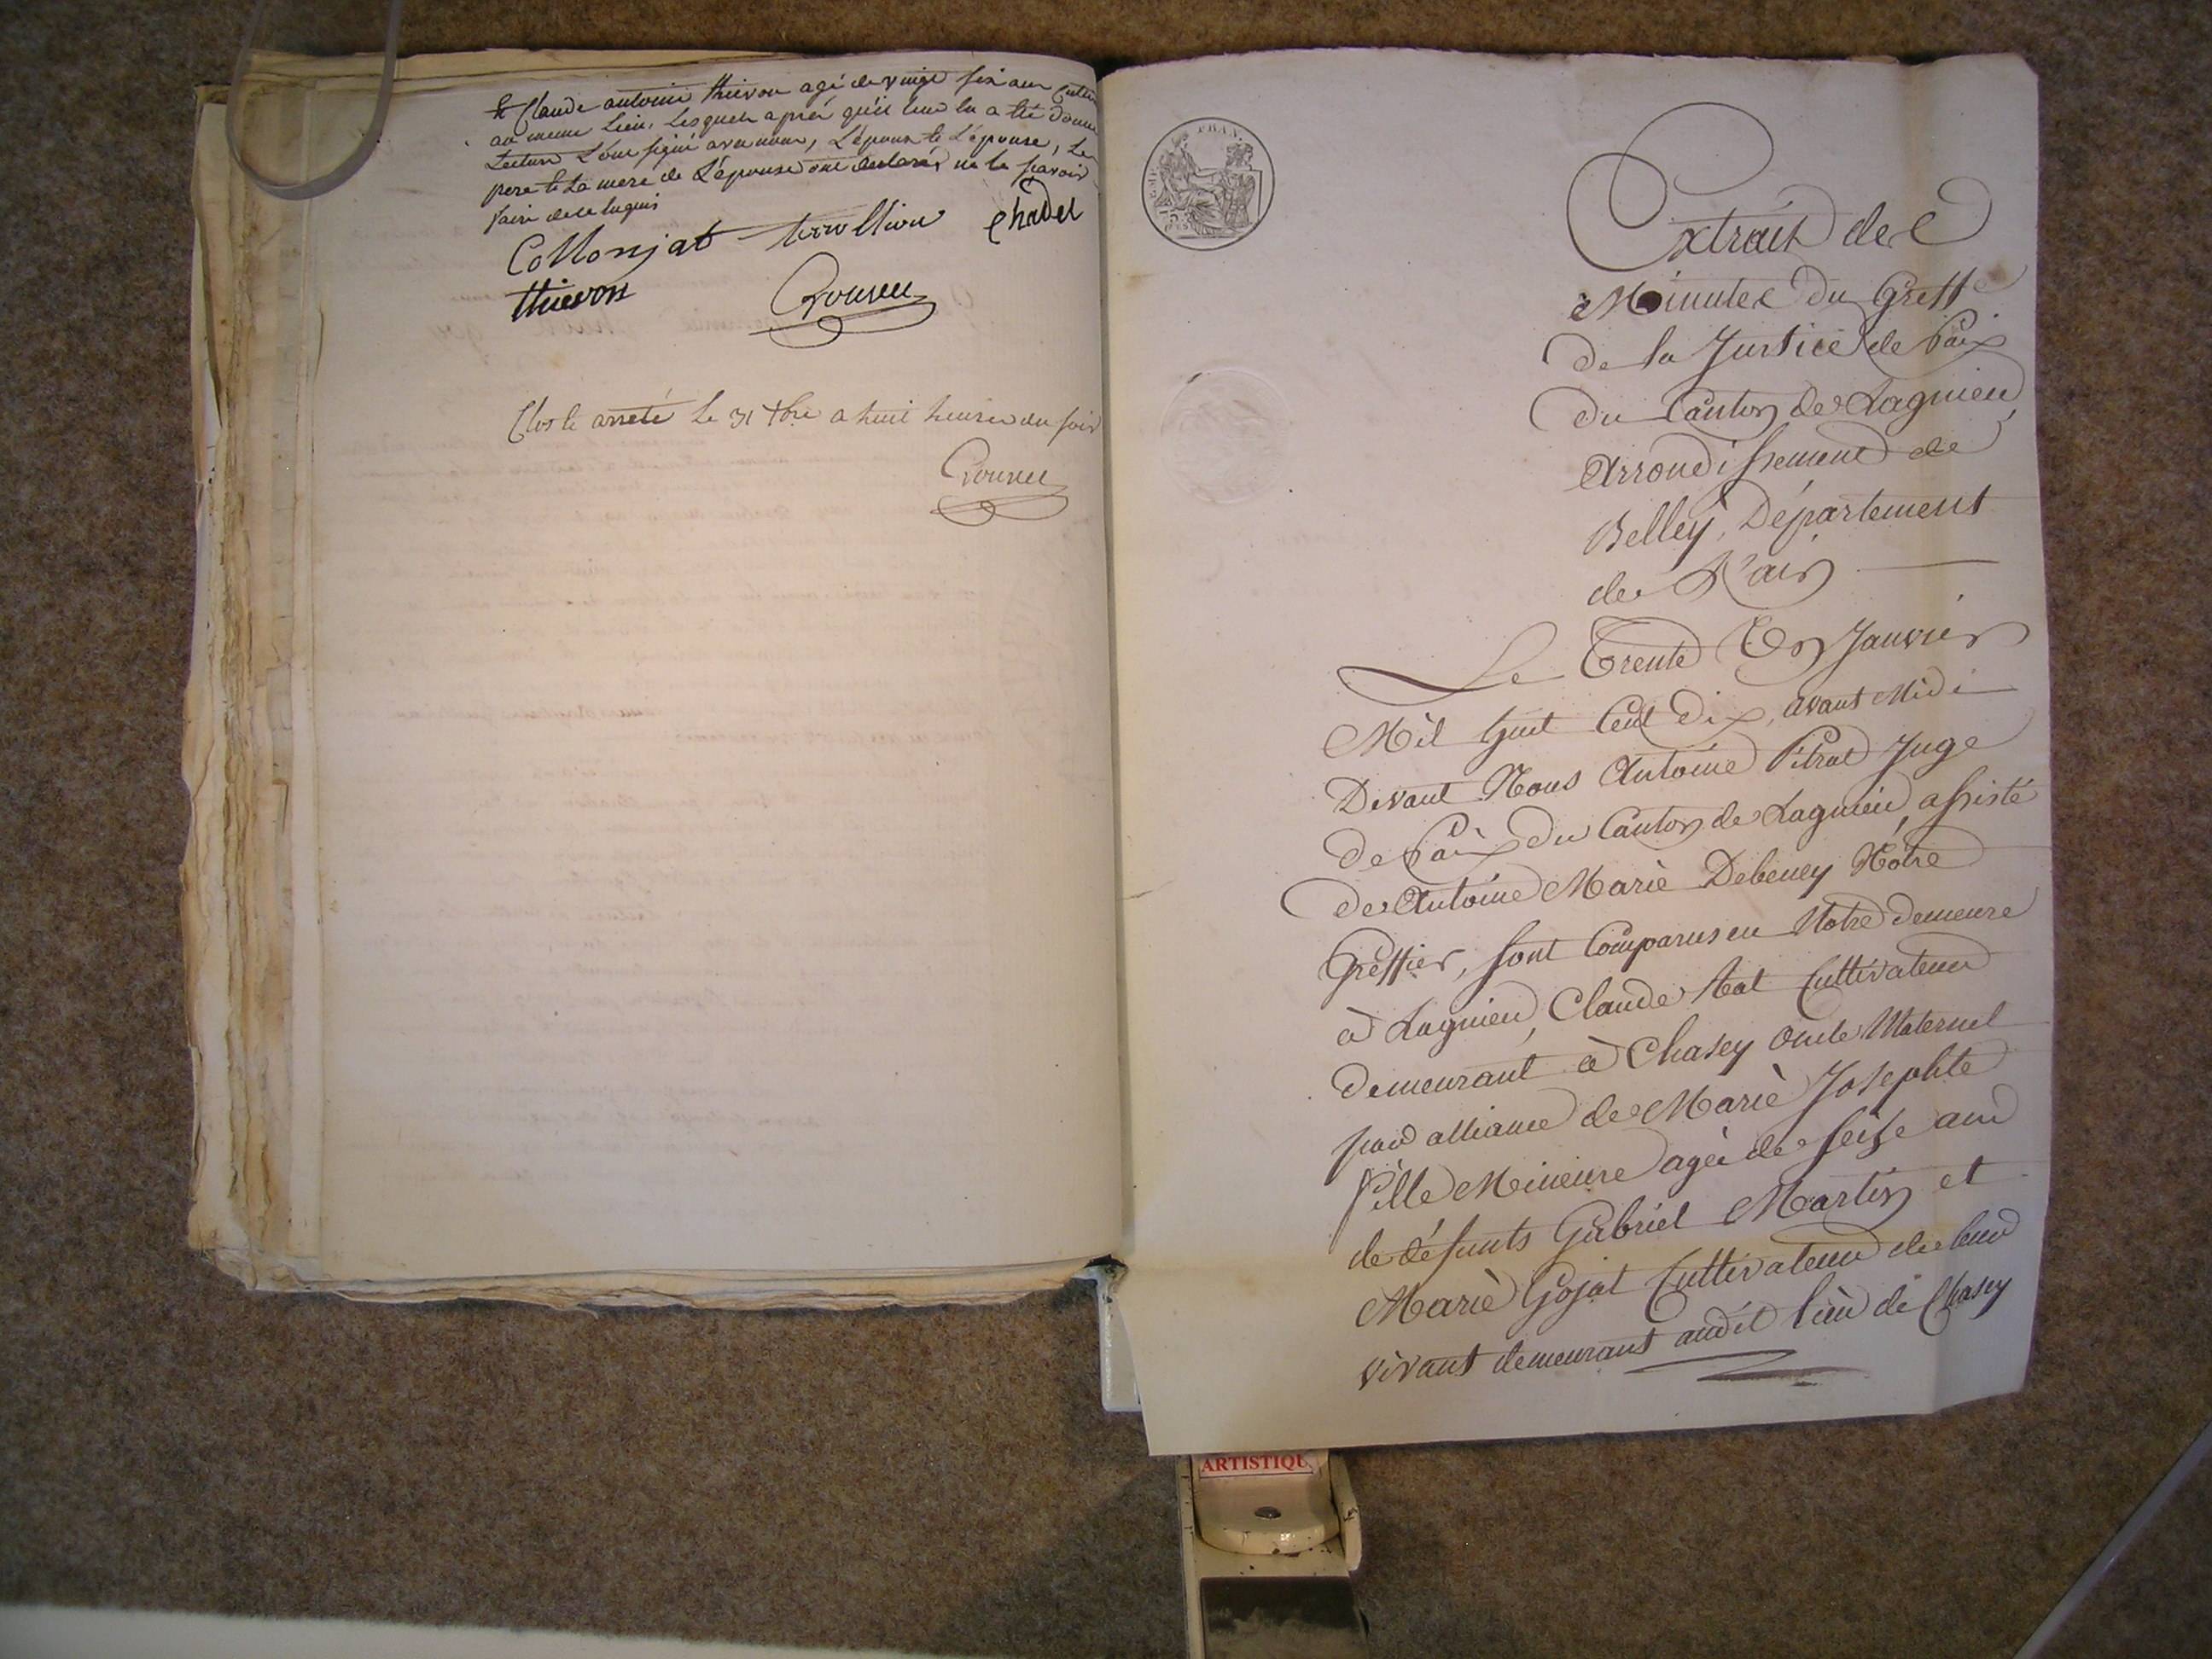 et Claude antoine thievon agé de vingt six ans
au meme lieu, Lesquels aprés qu'il leur en a été donné
Lecture L'ont signé avec nous, L'epoux et L'epouse, Le
pere et La mere de L'epouse ont declarés ne le savoir
faire de ce requis
Collonjat chadel
thievon Crousu
Clos et arreté Le 31 xbre a huit heures du soir
Extrait des
Minutes du Greffe
de la Justice de Paix
du Canton de Lagnieu,
Arrondissement de
Belley, Département
de L'ain
Le Trente Un Janvier
Mil huit Cent Dix, avant Midi
Devant Nous Antoine Pitrat Juge
de Paix du Canton de Lagnieu, assisté
de Antoine Marie Debeney Nôtre
Greffier, sont Comparus en Notre demeure
à Lagnieu, Claude Cultivateur
demeurant à Chasey oncle Maternel
par alliance de Marie Josephte
fille Mineure agée de seize ans
de défunts Gabriel Martin et
Marie Gojat Cultivateurs de leur
vivant demeurant audit lieu de Chasey
ARTISTIQU